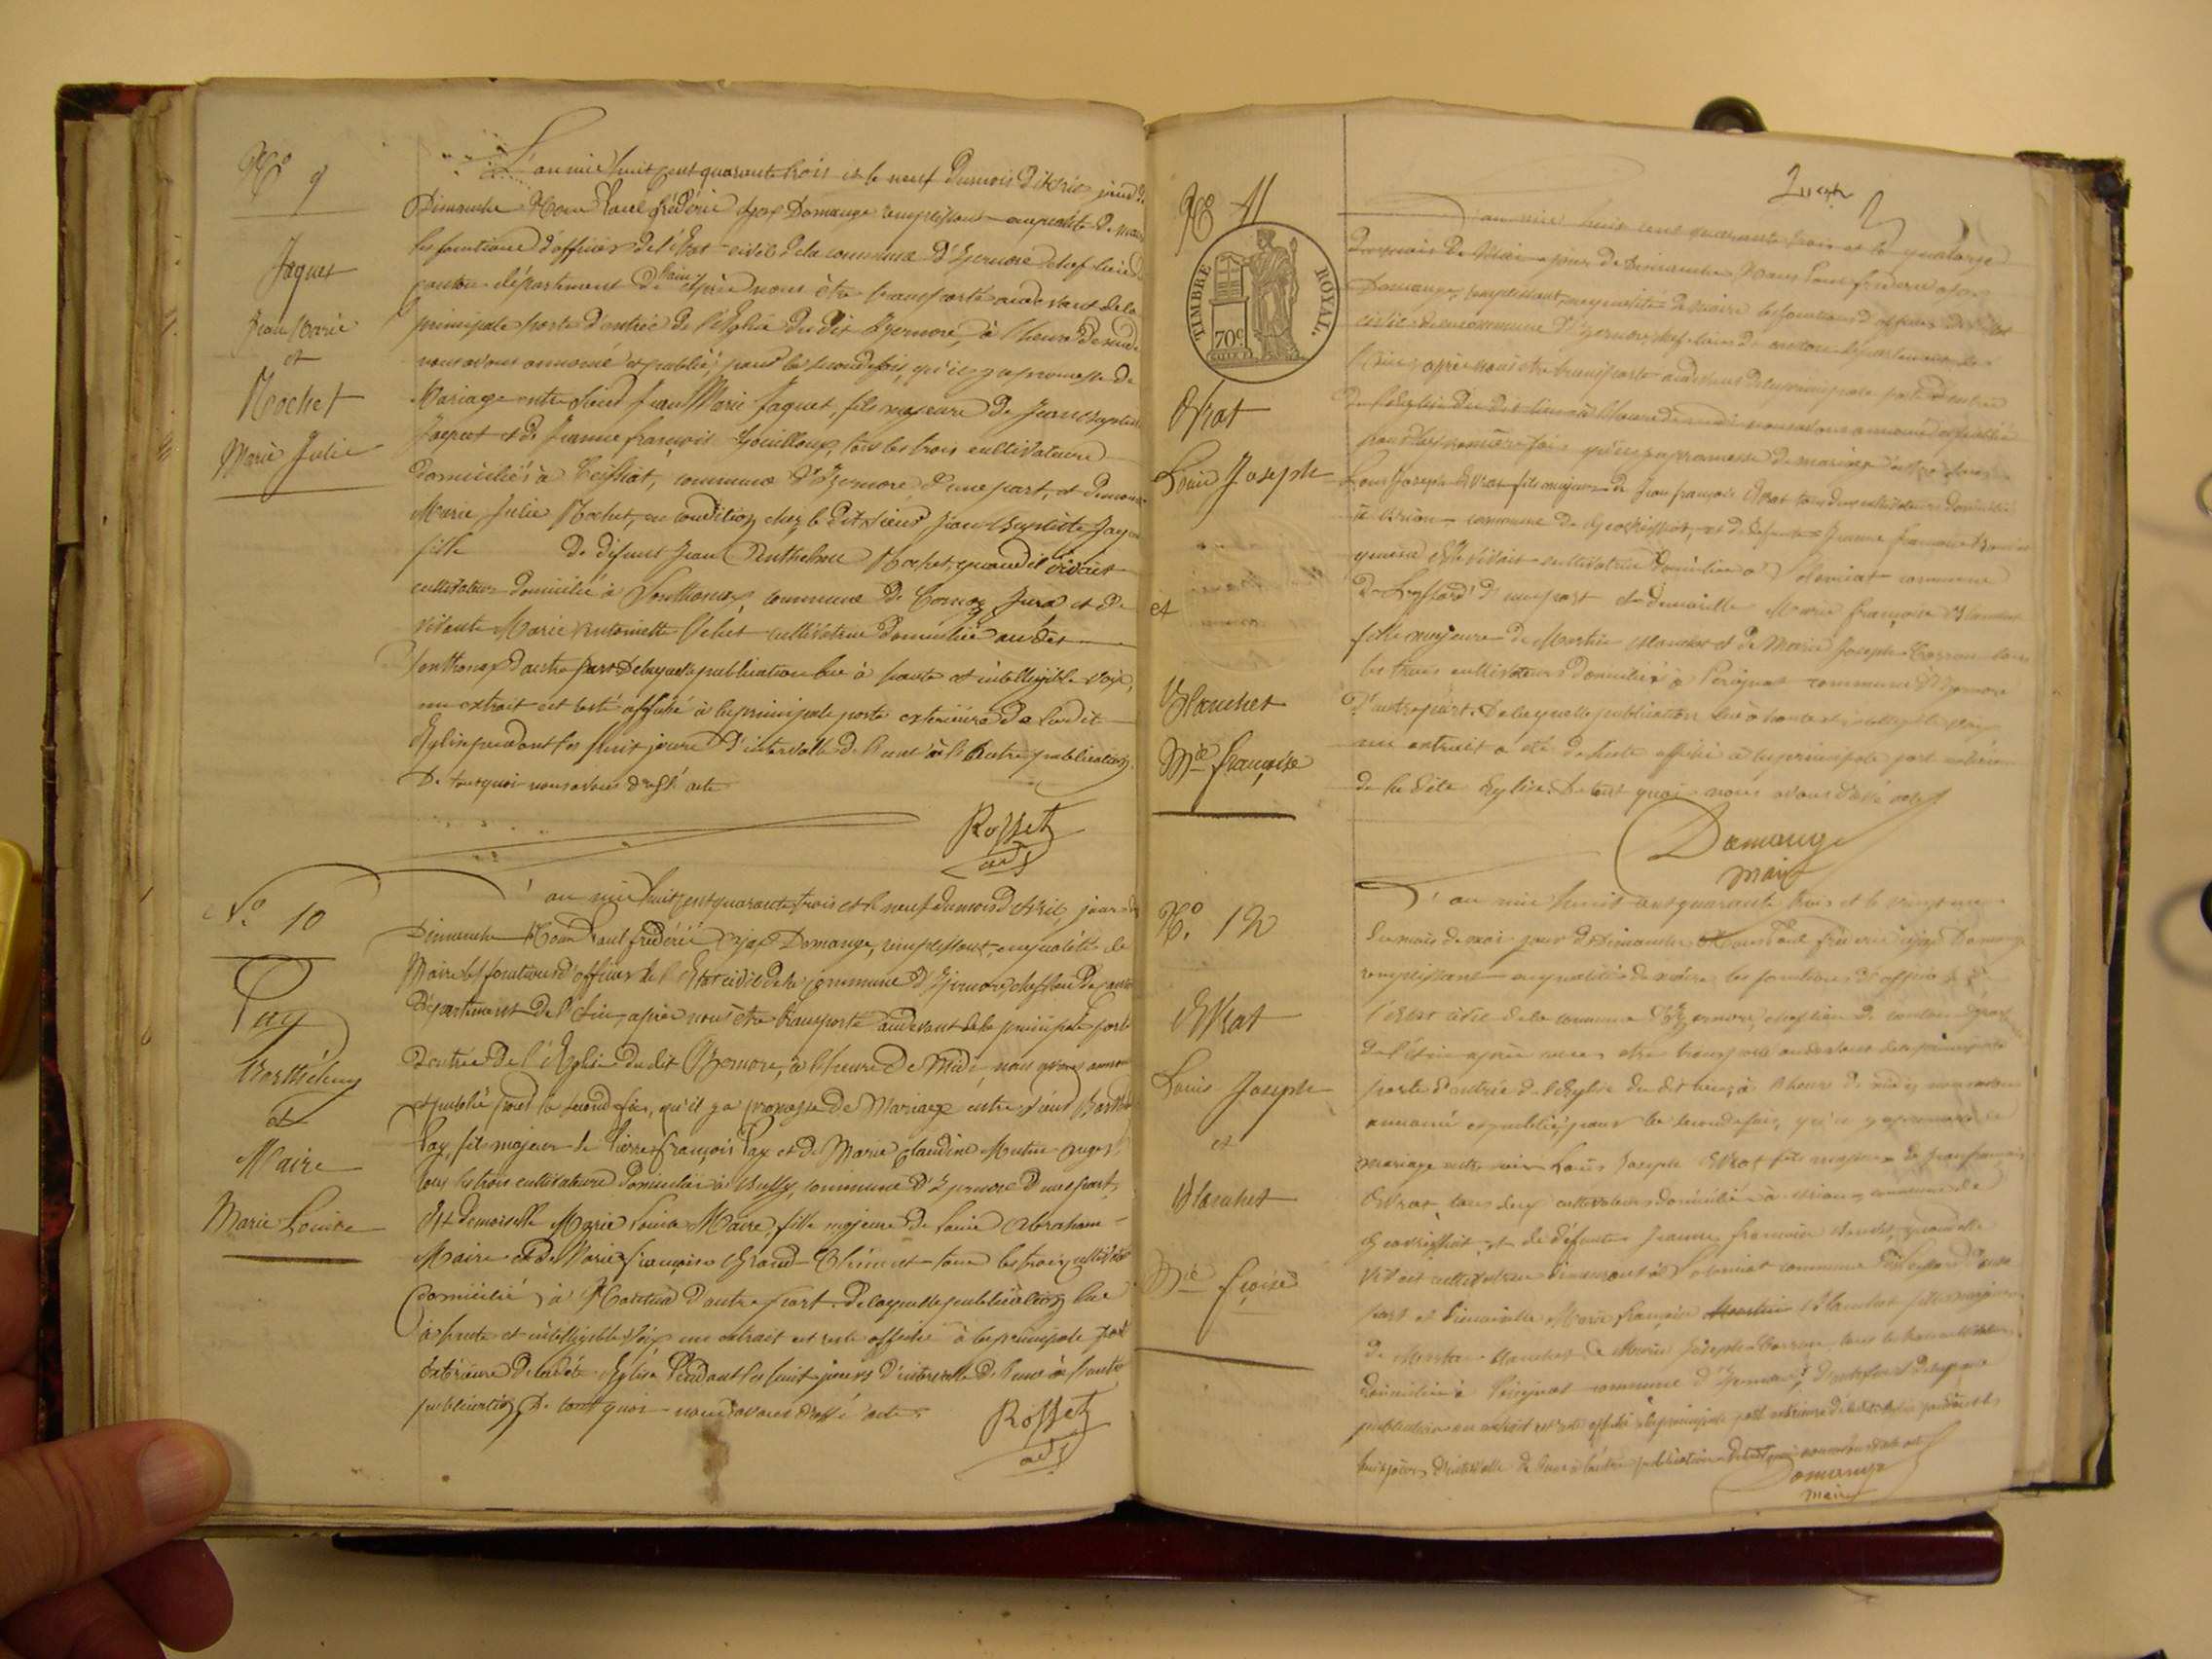 N° 9
Jaquet
Jean Marie
et
Rochet
Marie Julie
L'an mil huit cent quarante trois et le neuf du mois d'avril jour de
Dimanche Nous Paul Frédéric Domange remplissant en qualité de maire
les fonctions d'officier de l'état civil de la commune d'Izernore chef lieu de
canton département de l'ain après nous être transporté au devant de la
principale porte d'entrée de l'église du dit Izernore, à l'heure de midi
nous avons annoncé et publié, pour la seconde fois, qu'il y a promesse de
Mariage entre Sieur Jean Marie Jaquet, fils majeur de Jean Baptiste
Jaquet et de Jeanne françoise Gouilloux, tous les trois cultivateurs
domiciliés à Ceissiat, commune d'Izernore, d'une part, et demoiselle
Marie Julie Rochet, en condition chez le dit sieur Jean Baptiste Jaquet
fille de défunt Jean Rochet, quand il vivait
cultivateur domicilié à Sonthonax, commune de Jura et de
vivante Marie Antoinette cultivatrice domiciliée au dit
Sonthonax d'autre part De laquelle publication lue à haute et intelligible voix,
un extrait est resté affiché à la principale porte extérieure de la dite
Eglise pendant les huit jours d'intervalle de l'une à l'autre publication
De tout quoi nous avons dressé acte
Rosset
adj
N° 10
Pay
Barthélemy
et
Maire
Marie Louise
L'an mil huit cent quarante trois et le neuf du mois d'avril, jour de
Dimanche Nous Paul frédéric Domange, remplissant en qualité de
Maire les fonctions d'officier de l'Etat civil de la commune d'Izernore, chef lieu de canton
Département de l'Ain, après nous être transporté au devant de la principale porte
d'entrée de l'Eglise du dit Izernore, à l'heure de Midi, nous avons annoncé
et publié pour la seconde fois, qu'il y a promesse de Mariage entre sieur
Pay, fils majeur de Pierre François Pay et de Marie Claudine
tous les trois cultivateurs domiciliés à Bussy, commune d'Izernore d'une part,
Et demoiselle Marie Louise Maire, fille majeure de Louis Abraham
Maire et de Marie françoise Grand-Clément tous les trois
domiciliés à Nantua d'autre part. de laquelle publication lue
à haute et intelligible voix un extrait est resté affiché à la principale porte
Extérieure de la dite Eglise Pendant les huit jours d'intervalle de l'une à l'autre
publication, De tout quoi nous avons dressé acte
Rosset
adj
N° 11
TIMBRE ROYAL.
70c
Evrat
Louis Joseph
et
Blanchet
Mie françoise
L'an mil huit cent quarante trois et le quatorze
du mois de Mai jour de Dimanche Nous Paul frédéric
Domange, remplissant en qualité de maire les fonctions d'officier de l'état
civil de la commune d'Izernore, chef lieu de canton département de
l'Ain, après nous être transporté au devant de la principale porte d'entrée
de l'église du dit lieu à l'heure de midi nous avons annoncé et publié
pour la première fois qu'il y a promesse de mariage entre sieur
Louis Joseph Evrat fils majeur de Jean françois Evrat tous deux cultivateurs domiciliés
à Brion commune de Géovreissiat, et de défunte Jeanne françoise
quand elle vivait cultivatrice domiciliée à commune
de Leyssard d'une part et demoiselle Marie françoise Blanchet
fille majeure de Martin Blanchet et de Marie Joseph tous
les trois cultivateurs domiciliés à Pérignat commune d'Izernore
D'autre part. De laquelle publication lue à haute et intelligible voix
un extrait a été de suite affiché à la principale porte extérieure
de la dite Eglise. De tout quoi nous avons dressé acte
Domange
maire
N° 12
Evrat
Louis Joseph
et
Blanchet
Mie fçoise
L'an mil huit cent quarante trois et le vingt un
du mois de mai jour de Dimanche, Nous Paul Frédéric Domange
remplissant en qualité de maire les fonctions d'officier de
l'état civil de la commune d'Izernore, chef lieu de canton départ
de l'Ain après nous être transporté au devant de la principale
porte d'entrée de l'Eglise du dit lieu, à l'heure de midi, nous avons
annoncé et publié, pour la seconde fois, qu'il y a promesse de
mariage entre sieur Louis Joseph Evrat fils majeur de Jean françois
Evrat, tous deux cultivateurs domiciliés à Brion, commune de
Géovreissiat, et de défunte Jeanne françoise quand elle
vivait cultivatrice demeurant à commune de Leyssard d'une
part et demoiselle Marie françoise Blanchet fille majeure
de Martin Blanchet de Marie Joseph tous les trois cultivateurs
domiciliés à Pérignat commune d'Izernore, d'autre part De laquelle
publication un extrait est resté affiché à la principale porte extérieure de la dite Eglise pendant les
huit jours d'intervalle de l'une à l'autre publication De tout quoi nous avons dressé acte
Domange
maire